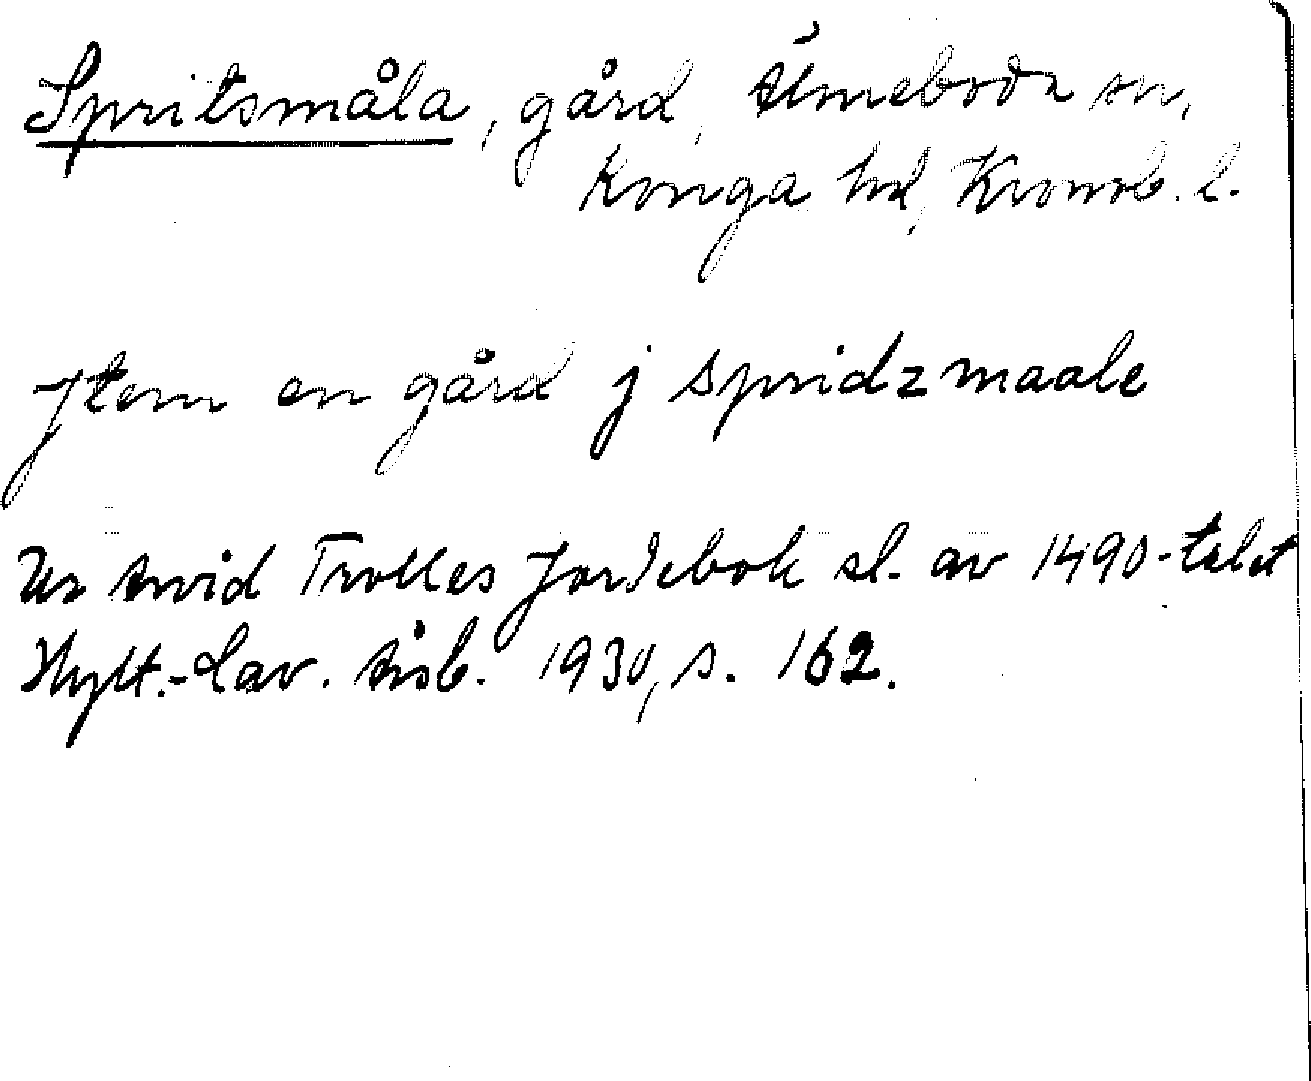 Spritsmåla, gård, Älmeboda sn,
Konga hd, Kronob. l.
Jtem en gård j spridzmaale
Ur Arvid Trolles Jordebok sl. av 1490-talet
Hylt.-Cav. Årsb. 1930, s. 162.